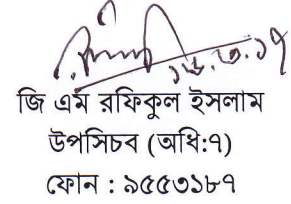 ১৮.৩.১৭
জি এম রফিকুল ইসলাম
উপসিচব (অধি:৭)
ফোন : ৯৫৫৩১৮৭